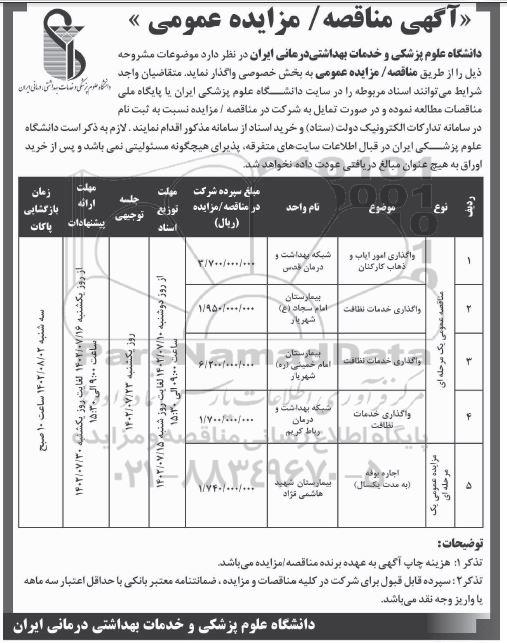 «آگهی مناقصه/ مزایده عمومی »
دانشگاه علوم پزشکی و خدمات بهداشتی، درمانی ایران
دانشگاه علوم پزشکی و خدمات بهداشتی‌درمانی ایران در نظر دارد موضوعات مشروحه
ذیل را از طریق مناقصه/ مزایده عمومی به بخش خصوصی واگذار نماید. متقاضیان واجد
شرایط می‌توانند اسناد مربوطه را در سایت دانشگاه علوم پزشکی ایران یا پایگاه ملی
مناقصات مطالعه نموده و در صورت تمایل به شرکت در مناقصه / مزایده نسبت به ثبت نام
در سامانه تدارکات الکترونیک دولت (ستاد) و خرید اسناد از سامانه مذکور اقدام نمایند . لازم به ذکر است دانشگاه
علوم پزشکی ایران در قبال اطلاعات سایت‌های متفرقه، پذیرای هیچگونه مسئولیتی نمی باشد و پس از خرید
اوراق به هیچ عنوان مبالغ دریافتی عودت داده نخواهد شد.
ردیف نوع موضوع نام واحد مبلغ سپرده شرکت در مناقصه /مزایده (ریال) مهلت توزیع اسناد جلسه توجیهی مهلت ارائه پیشنهادات زمان بازگشایی پاکات
۱ واگذاری امور ایاب و ذهاب کارکنان شبکه بهداشت و درمان قدس ۳/۷۰۰/۰۰۰/۰۰۰
۲ واگذاری خدمات نظافت بیمارستان امام سجاد (ع) شهریار ۱/۹۵۰/۰۰۰/۰۰۰
۳ واگذاری خدمات نظافت بیمارستان امام خمینی (ره) شهریار ۶/۳۰۰/۰۰۰/۰۰۰
۴ واگذاری خدمات نظافت شبکه بهداشت و درمان رباط کریم ۱/۷۰۰/۰۰۰/۰۰۰
۵ اجاره بوفه (به مدت یکسال) بیمارستان شهید هاشمی نژاد ۱/۷۴۰/۰۰۰/۰۰۰
مناقصه عمومی یک مرحله ای
مزایده عمومی یک مرحله ای
از روز دوشنبه ۱۴۰۲/۰۷/۱۰ لغایت روز شنبه ۱۴۰۲/۰۷/۱۵
ساعت ۰۹:۰۰ الی ۱۵:۳۰
روز یکشنبه ۱۴۰۲/۰۷/۲۳
از روز یکشنبه ۱۴۰۲/۰۷/۱۶ لغایت روز یکشنبه ۱۴۰۲/۰۷/۳۰
ساعت ۹:۰۰ الی ۱۵:۳۰
سه شنبه ۱۴۰۲/۰۸/۰۲ ساعت ۱۰ صبح
ParsNamadData
مرکز فرآوری اطلاعات پارس نماد داده ها
پایگاه اطلاع رسانی مناقصه و مزایده
۰۲۱-۸۸۳۴۹۶۷۰-۵
توضیحات:
تذکر ۱: هزینه چاپ آگهی به عهده برنده مناقصه/مزایده می‌باشد.
تذکر۲: سپرده قابل قبول برای شرکت در کلیه مناقصات و مزایده ، ضمانتنامه معتبر بانکی با حداقل اعتبار سه ماهه
یا واریز وجه نقد می‌باشد.
دانشگاه علوم پزشکی و خدمات بهداشتی درمانی ایران